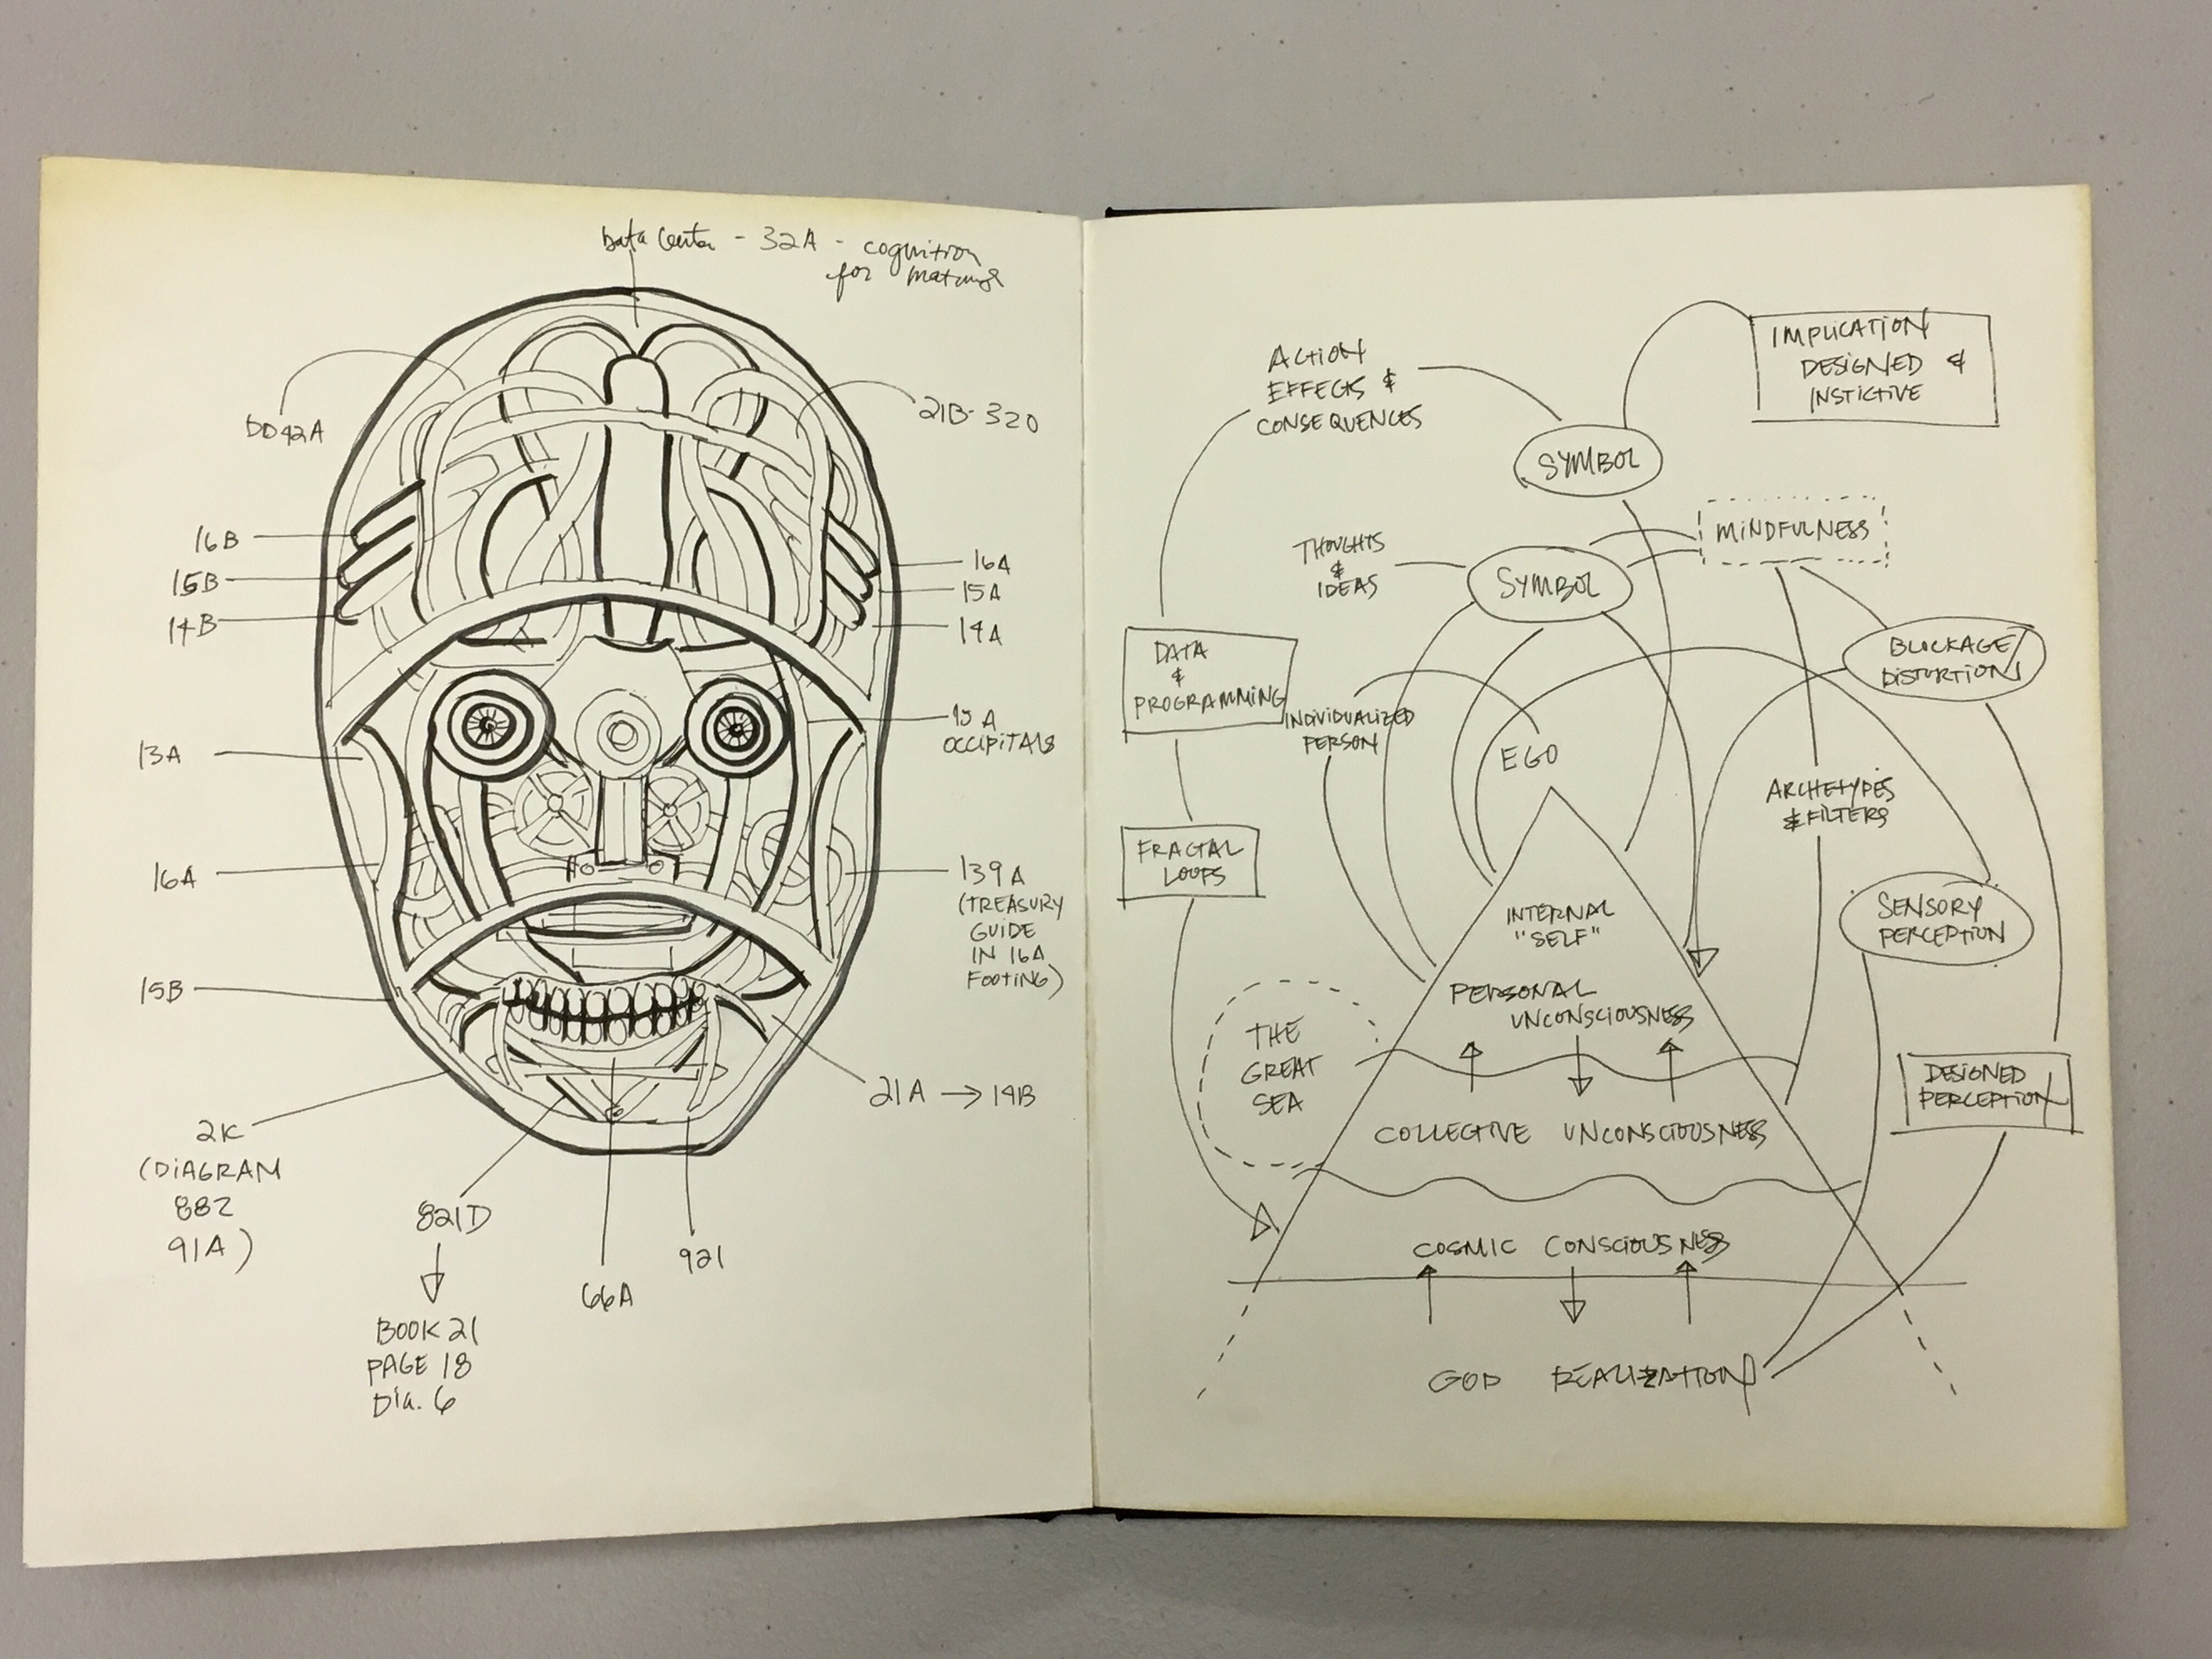 Data Center - 32A - cognition
for
DD42A
21B-320
16B
15B
14B
16A
15A
14A
13A
15A
OCCIPITALS
16A
139A
(TREASURY
GUIDE
IN 16A
FOOTING)
15B
21A → 14B
2K
(DIAGRAM
882
91A)
821D
921
66A
BOOK 21
PAGE 18
DIA. 6
ACTION
EFFECTS &
CONSEQUENCES
IMPLICATION
DESIGNED &
INSTICTIVE
SYMBOL
MINDFULNESS
THOUGHTS
&
IDEAS
SYMBOL
BLOCKAGE/
DISTORTION
DATA
&
PROGRAMMING
INDIVIDUALIZED
PERSON
EGO
ARCHETYPES
& FILTERS
FRACTAL
LOOPS
SENSORY
PERCEPTION
INTERNAL
"SELF"
PERSONAL
UNCONSCIOUSNESS
THE
GREAT
SEA
DESIGNED
PERCEPTION
COLLECTIVE UNCONSCIOUSNESS
COSMIC CONSCIOUSNESS
GOD REALIZATION